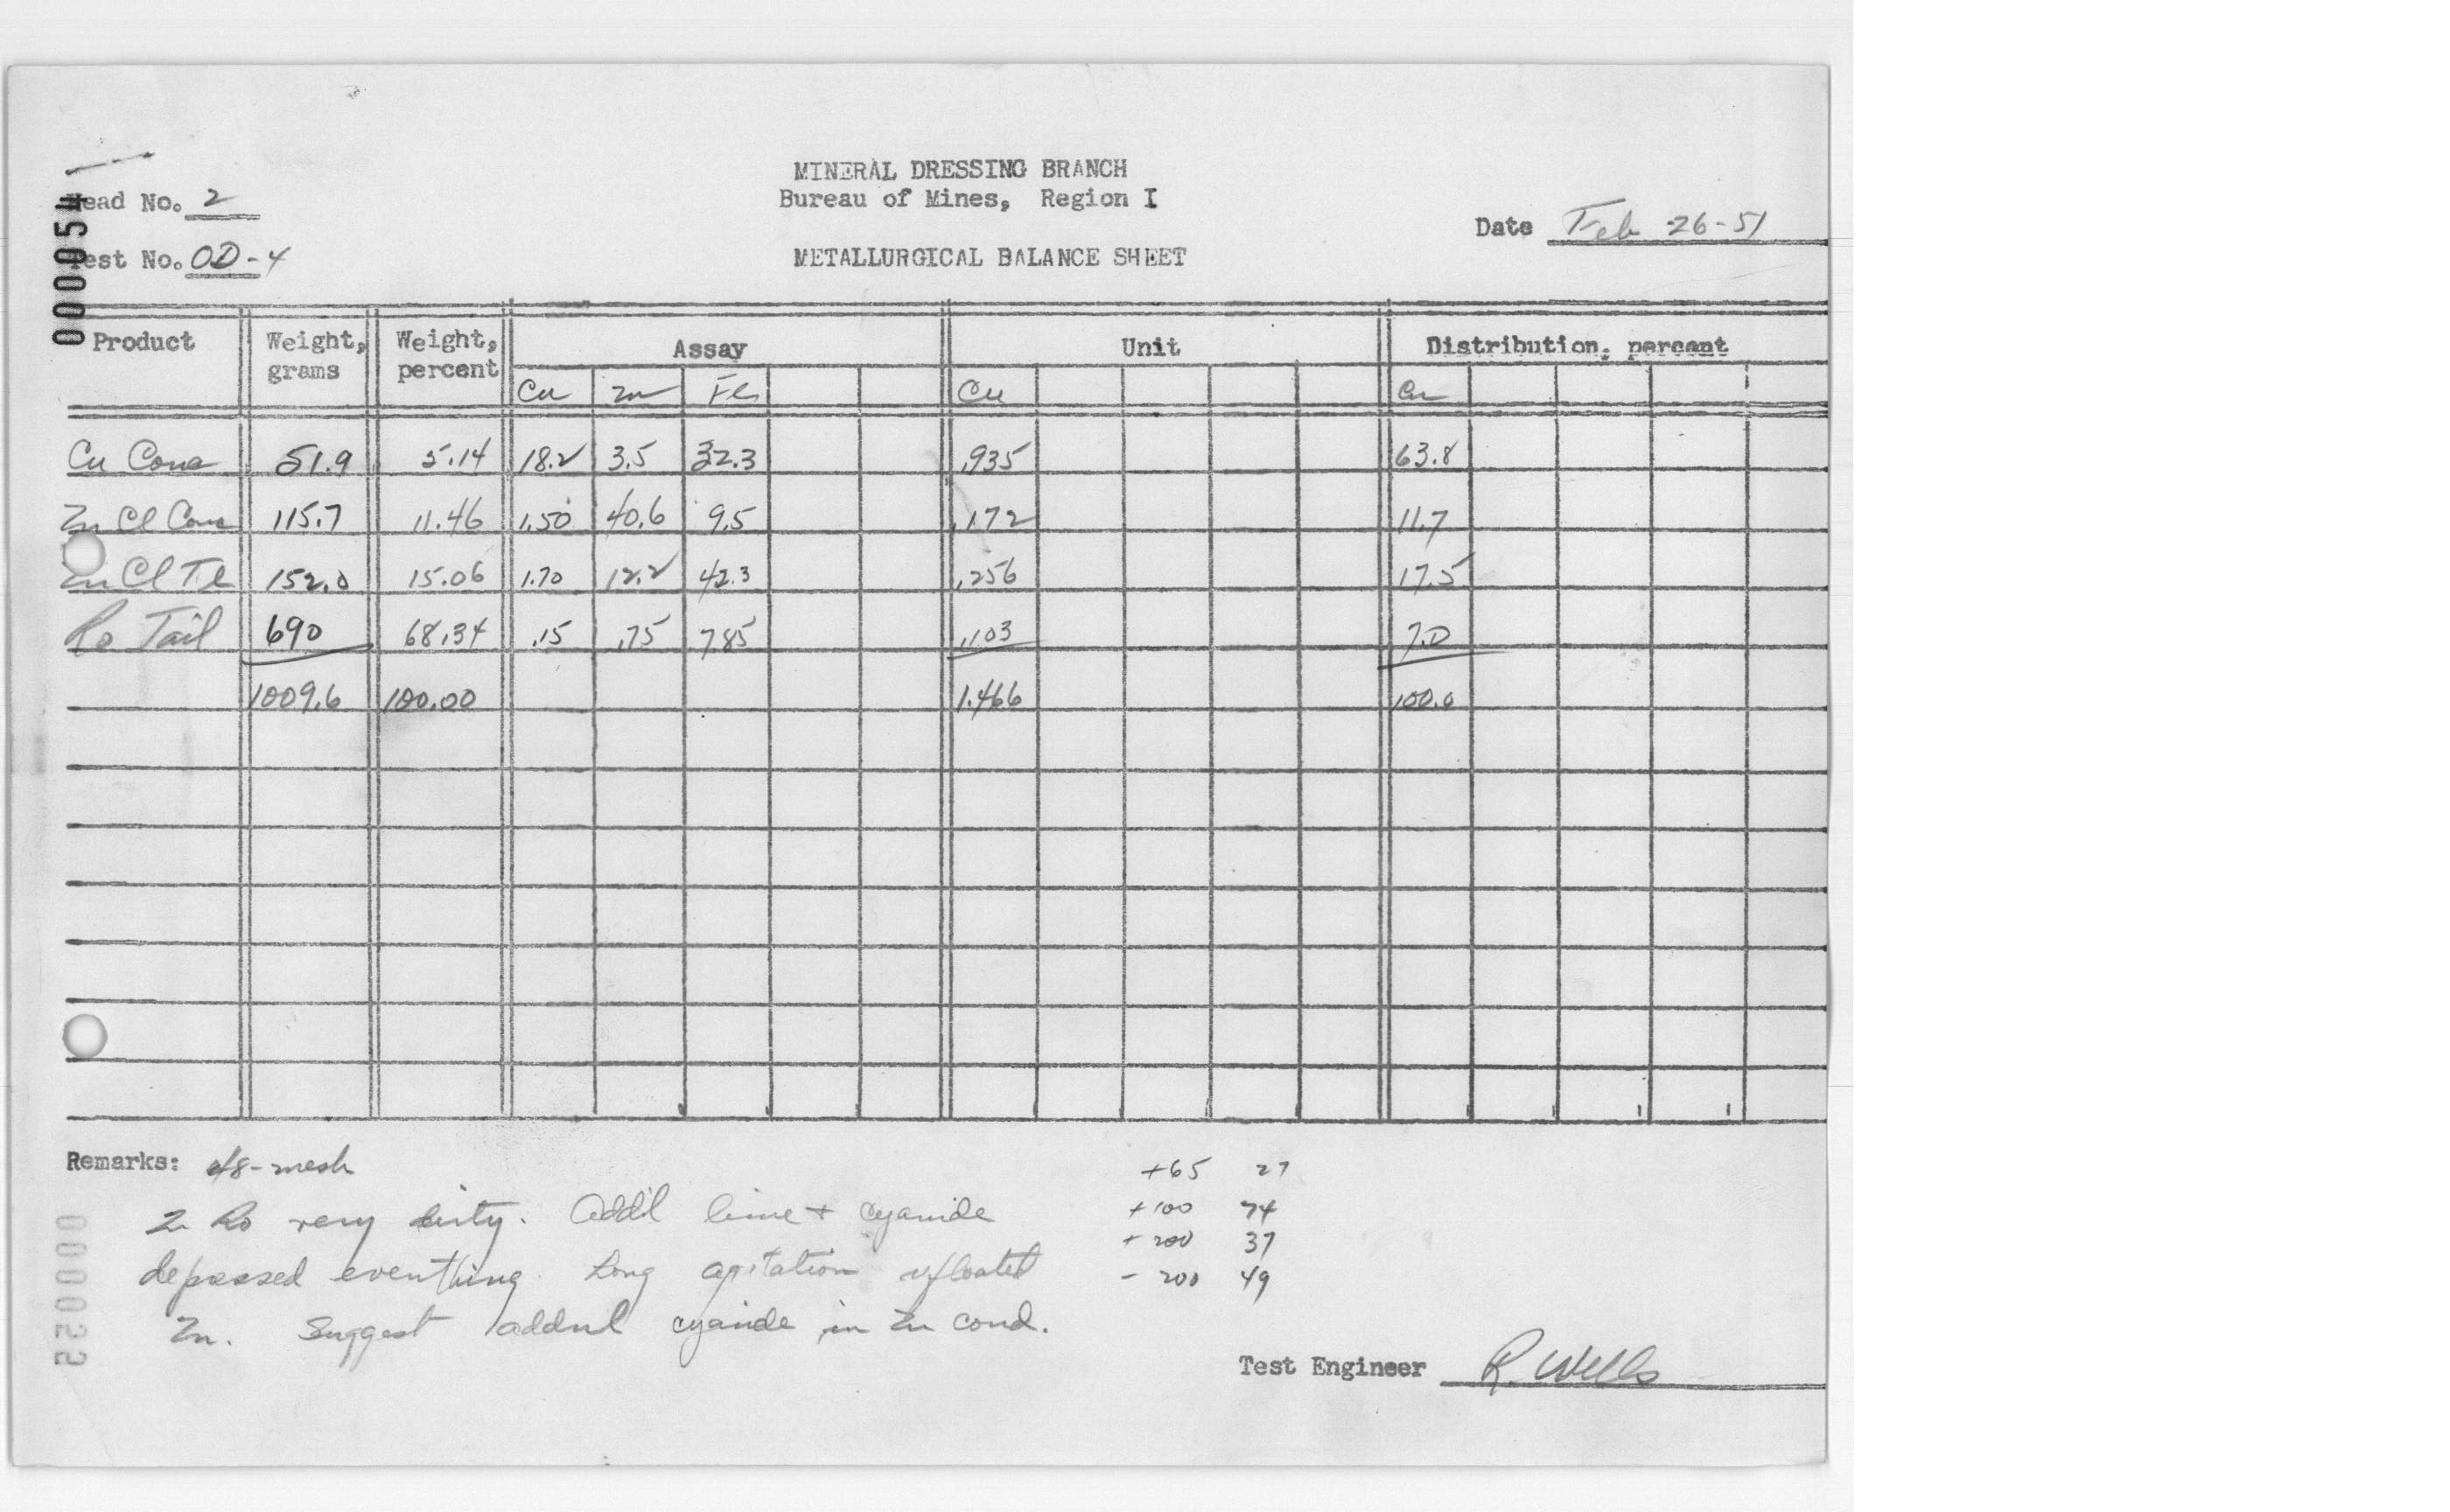 MINERAL DRESSING BRANCH
Bureau of Mines, Region I
Head No. 2
Date Feb 26-51
Test No. OD-4
METALLURGICAL BALANCE SHEET
000054
Product Weight, grams Weight, percent Assay Unit Distribution, percent
Cu Zn Fe Cu Cu
Cu Conc 51.9 5.14 18.2 3.5 32.3 .935 63.8
Zn Cl Conc 115.7 11.46 1.50 40.6 9.5 .172 11.7
Zn Cl Tl 152.0 15.06 1.70 12.2 42.3 .256 17.5
Ro Tail 690 68.34 .15 .75 7.85 .103 7.0
1009.6 100.00 1.466 100.0
Remarks: 48-mesh
Zn Ro very dirty. Add'l lime + cyanide
depressed everything. Long agitation refloated
Zn. Suggest addnl cyanide in Zn cond.
+65 27
+100 74
+200 37
-200 49
Test Engineer R. Wells
000022